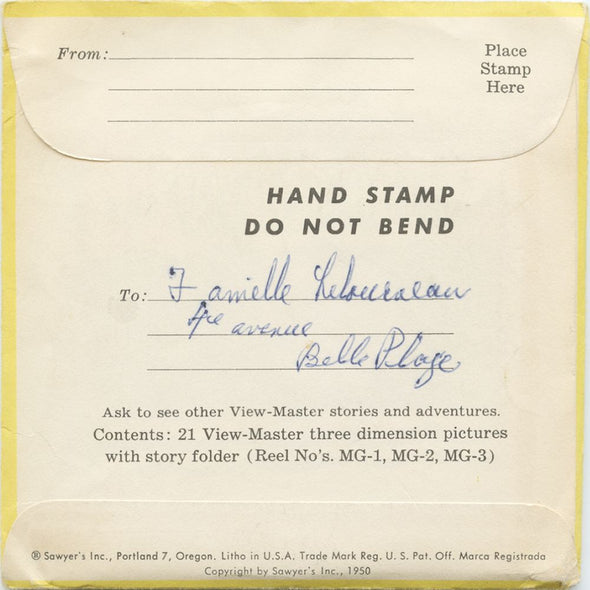 From:
Place
Stamp
Here
HAND STAMP
DO NOT BEND
To: Danielle Letourneau
4re avenue
Belle Plage
Ask to see other View-Master stories and adventures.
Contents: 21 View-Master three dimension pictures
with story folder (Reel No's. MG-1, MG-2, MG-3)
® Sawyer's Inc., Portland 7, Oregon. Litho in U.S.A. Trade Mark Reg. U. S. Pat. Off. Marca Registrada
Copyright by Sawyer's Inc., 1950